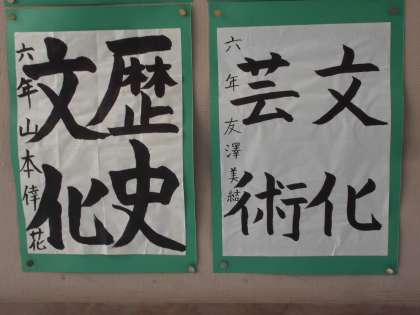 歴史
文化
六年山本倖花
文化
芸術
六年友澤美結